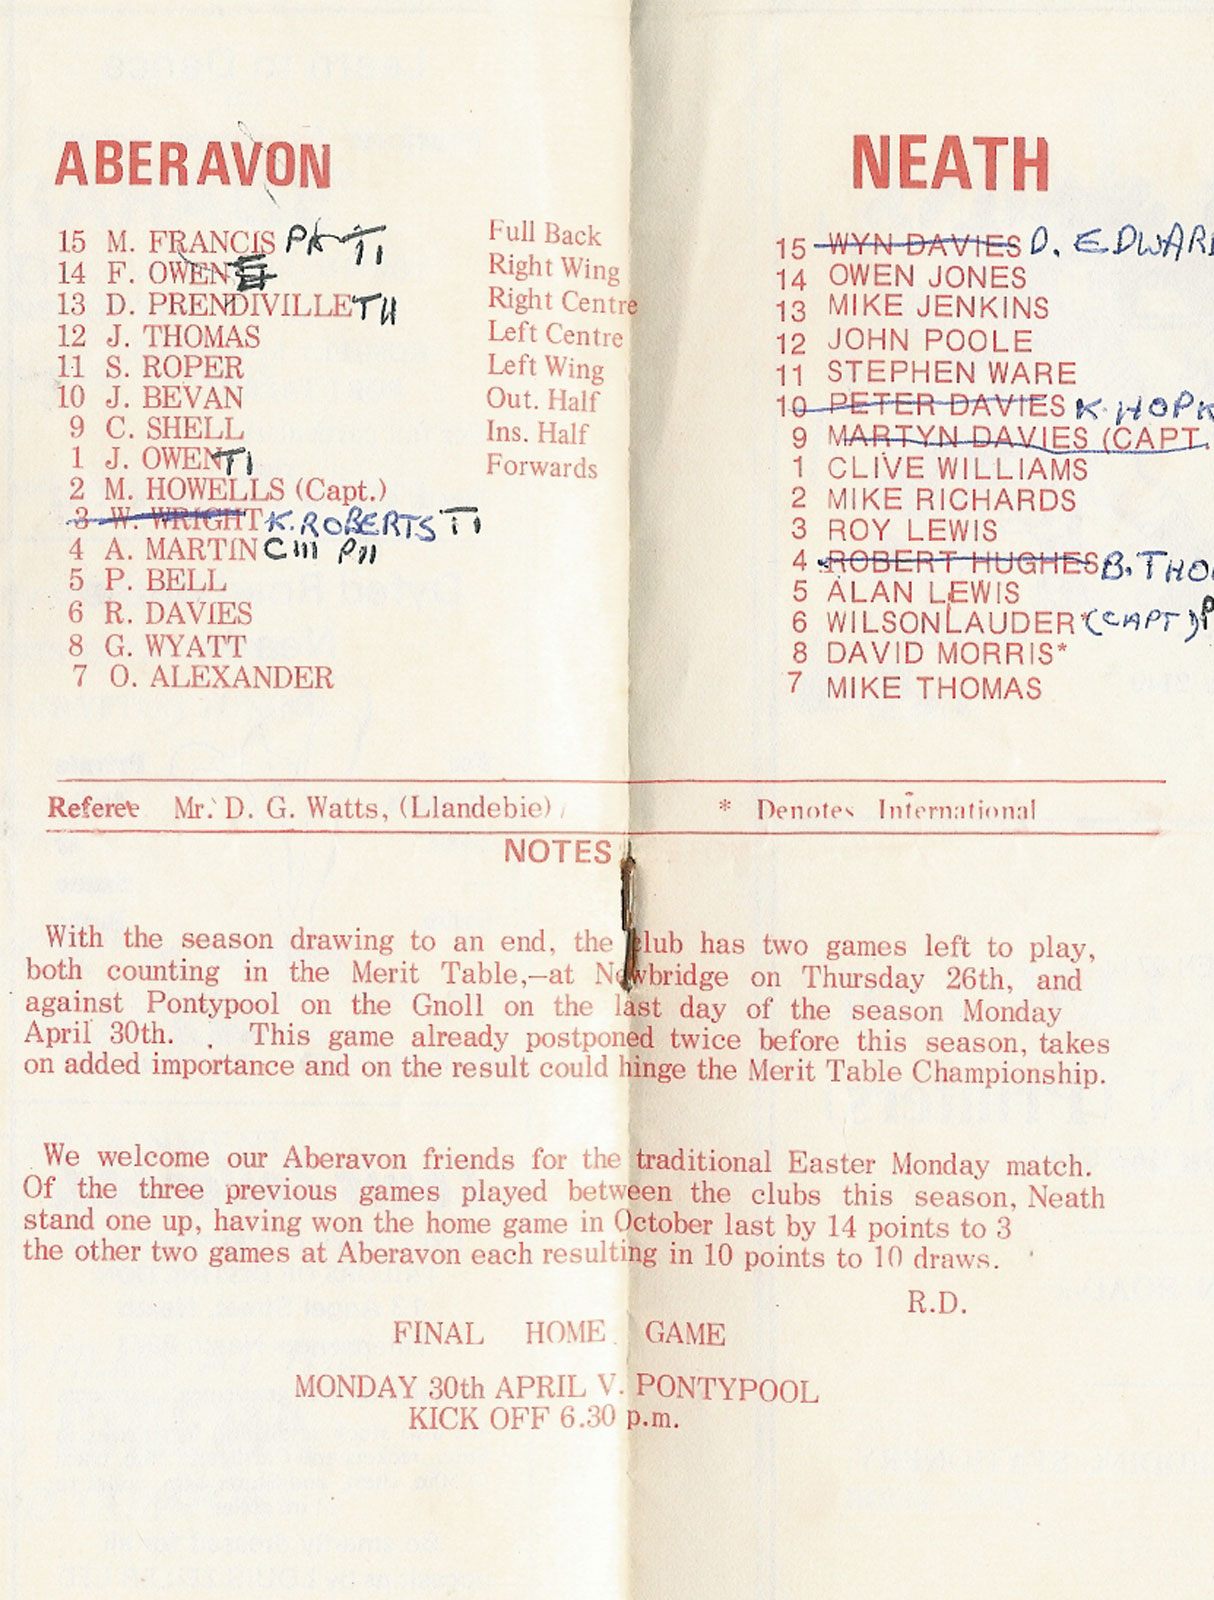 ABERAVON
15 M. FRANCIS PK T1
14 F. OWEN
13 D. PRENDIVILLE T11
12 J. THOMAS
11 S. ROPER
10 J. BEVAN
9 C. SHELL
1 J. OWEN T1
2 M. HOWELLS (Capt.)
3 W. WRIGHT K. ROBERTS T1
4 A. MARTIN C111 P11
5 P. BELL
6 R. DAVIES
8 G. WYATT
7 O. ALEXANDER
Full Back
Right Wing
Right Centre
Left Centre
Left Wing
Out. Half
Ins. Half
Forwards
NEATH
15 WYN DAVIES D. EDWARD
14 OWEN JONES
13 MIKE JENKINS
12 JOHN POOLE
11 STEPHEN WARE
10 PETER DAVIES K. HOPK
9 MARTYN DAVIES (CAPT.
1 CLIVE WILLIAMS
2 MIKE RICHARDS
3 ROY LEWIS
4 ROBERT HUGHES B. THO
5 ALAN LEWIS
6 WILSON LAUDER* (CAPT) P
8 DAVID MORRIS*
7 MIKE THOMAS
Referee Mr. D. G. Watts, (Llandebie) * Denotes International
NOTES
With the season drawing to an end, the club has two games left to play,
both counting in the Merit Table,—at Newbridge on Thursday 26th, and
against Pontypool on the Gnoll on the last day of the season Monday
April 30th. . This game already postponed twice before this season, takes
on added importance and on the result could hinge the Merit Table Championship.
We welcome our Aberavon friends for the traditional Easter Monday match.
Of the three previous games played between the clubs this season, Neath
stand one up, having won the home game in October last by 14 points to 3
the other two games at Aberavon each resulting in 10 points to 10 draws.
R.D.
FINAL HOME GAME
MONDAY 30th APRIL V. PONTYPOOL
KICK OFF 6.30 p.m.